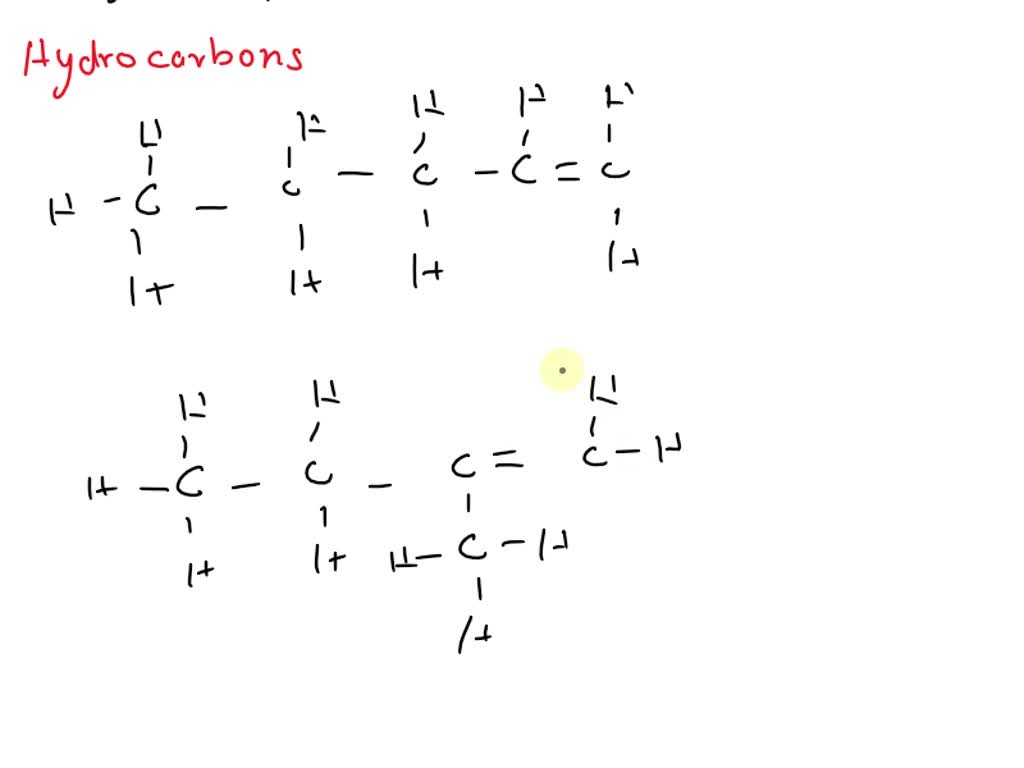 Hydrocarbons
H H H
H H
H - C - C - C - C = C
H H H H
H H H
H - C - C - C = C - H
H H H - C - H
H